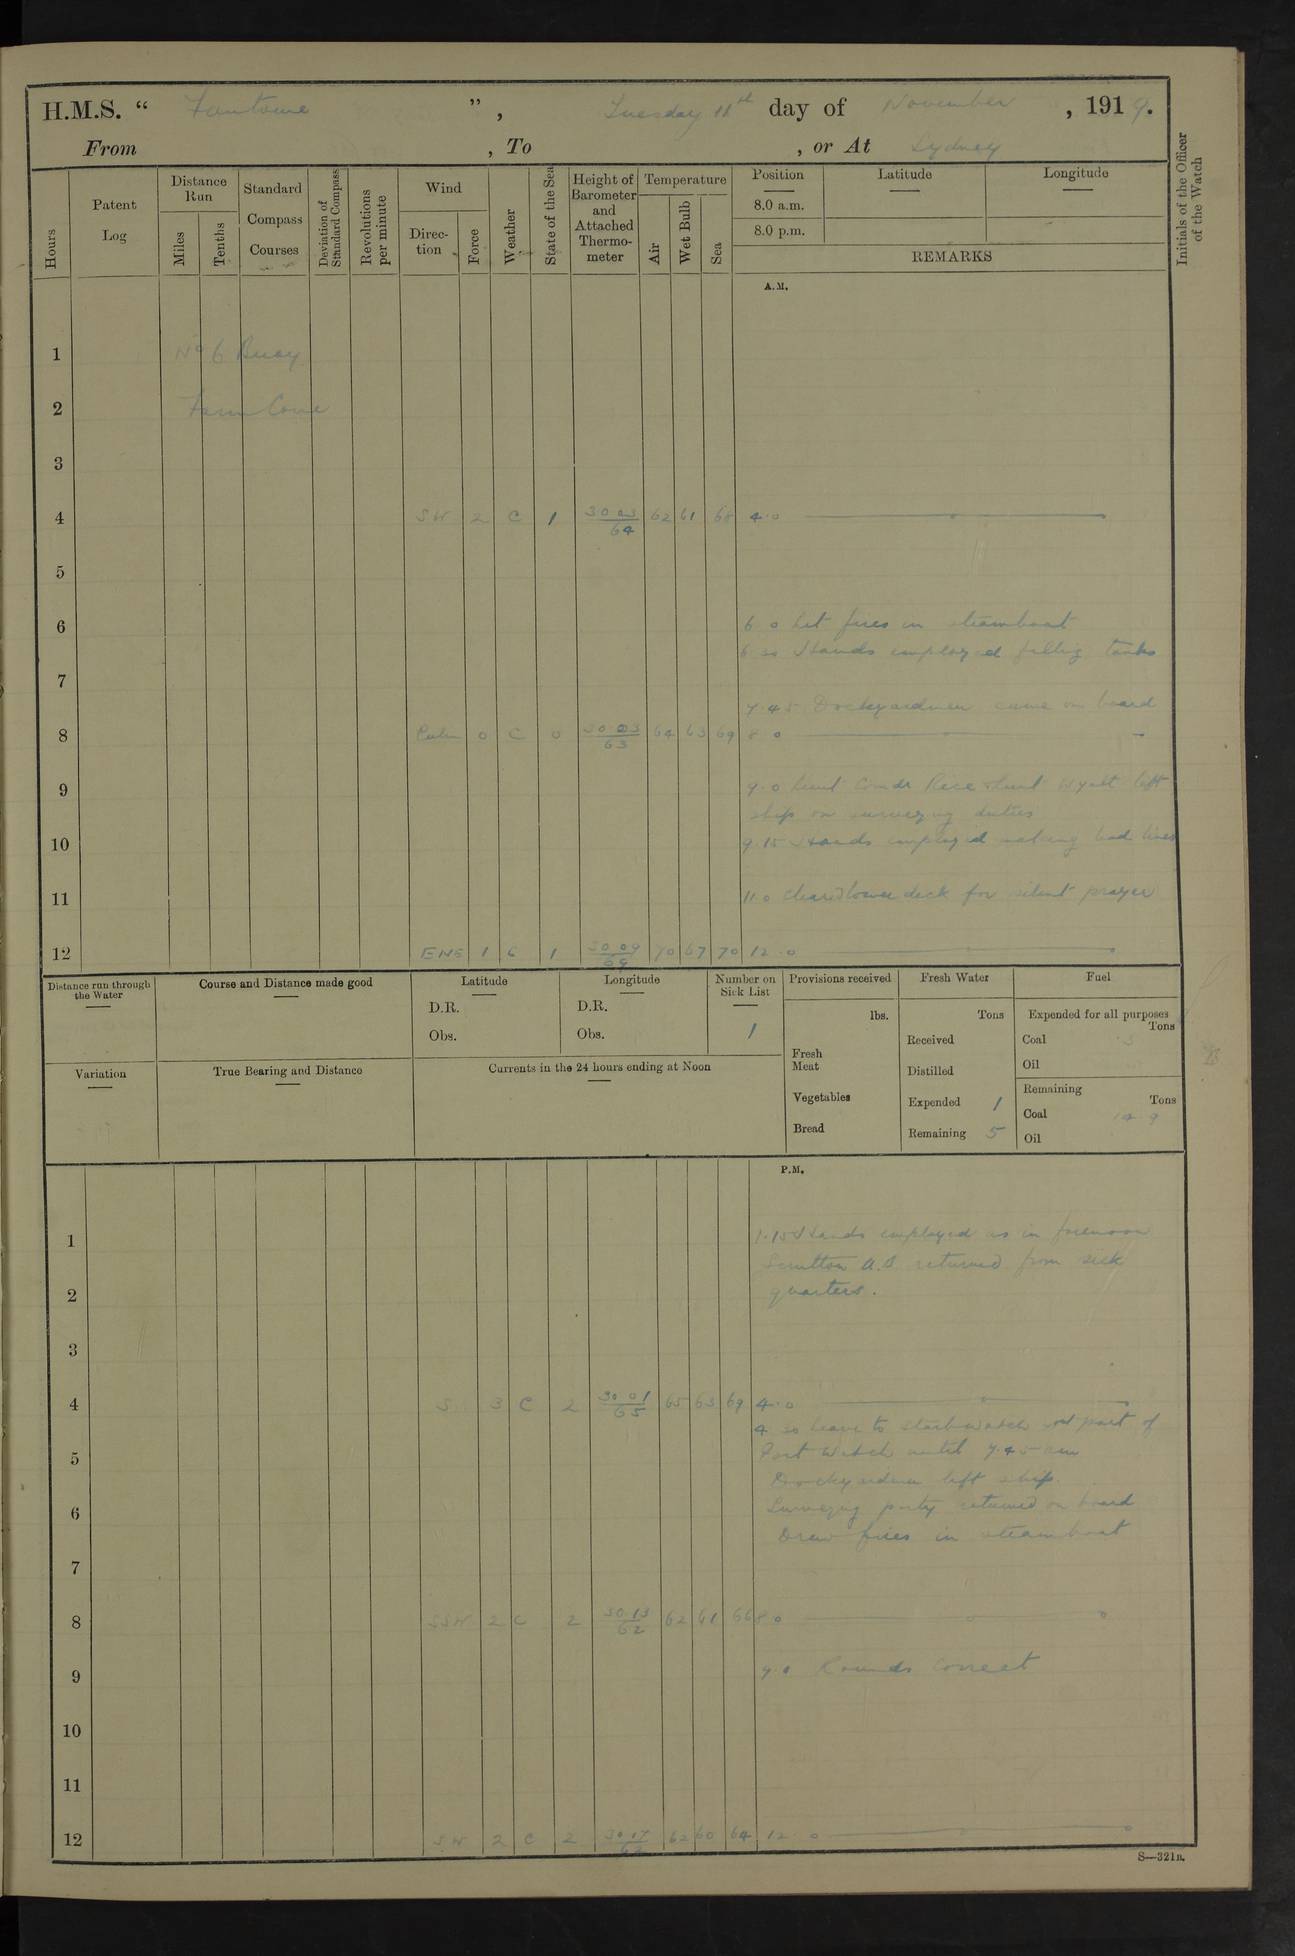 H.M.S. “ Fantome ”, Tuesday 11th day of November, 1919.
From , To , or At Sydney
Hours
Patent Log
Distance Run
Miles
Tenths
Standard Compass Courses
Deviation of Standard Compass
Revolutions per minute
Wind
Direction
Force
Weather
State of the Sea
Height of Barometer and Attached Thermometer
Temperature
Air
Wet Bulb
Sea
Position
8.0 a.m.
8.0 p.m.
Latitude
Longitude
REMARKS
Initials of the Officer of the Watch
A.M.
1 No 6 Buoy
2 Farm Cove
3
4 SW 2 C 1 30 03 64 62 61 68 4.0
5
6 6 0 Lit fires in steamboat
6 30 Hands employed filling tanks
7
7.45 Dockyardmen came on board
8 Calm 0 C 0 30 03 63 64 63 69 8 0
9 9.0 Lieut Comdr Rice Lieut Wyatt left
ship on surveying duties
10 9.15 Hands employed making lead lines
11 11.0 Cleared lower deck for silent prayer
12 ENE 1 C 1 30 09 69 70 67 70 12.0
Distance run through the Water
Course and Distance made good
Latitude
D.R.
Obs.
Longitude
D.R.
Obs.
Number on Sick List
1
Provisions received
lbs.
Fresh Meat
Vegetables
Bread
Fresh Water
Tons
Received
Distilled
Expended 1
Remaining 5
Fuel
Expended for all purposes
Tons
Coal .3
Oil
Remaining
Tons
Coal
Oil
Variation
True Bearing and Distance
Currents in the 24 hours ending at Noon
P.M.
1 1.15 Hands employed as in forenoon
Scrutton A.B. returned from sick
2 quarters.
3
4 S 3 C 2 30 01 65 65 63 69 4.0
4 30 Leave to Starb watch and part of
5 Port Watch until 7.45 am
Dockyardmen left ship.
6 Surveying party returned on board
Drew fires in steamboat
7
8 SSW 2 C 2 30.13 62 62 61 66 8 0
9 9.0 Rounds correct
10
11
12 SW 2 C 2 30 17 62 62 60 64 12.0
S—321B.